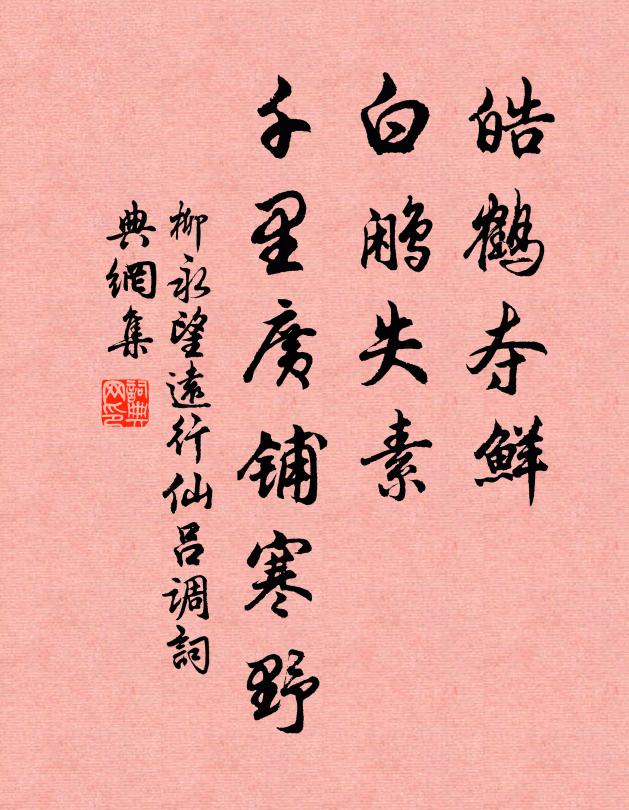 皓鶴夺鮮
白鹇失素
千里廣铺寒野
柳永望遠行仙吕调詞
典網集
詞典
网印